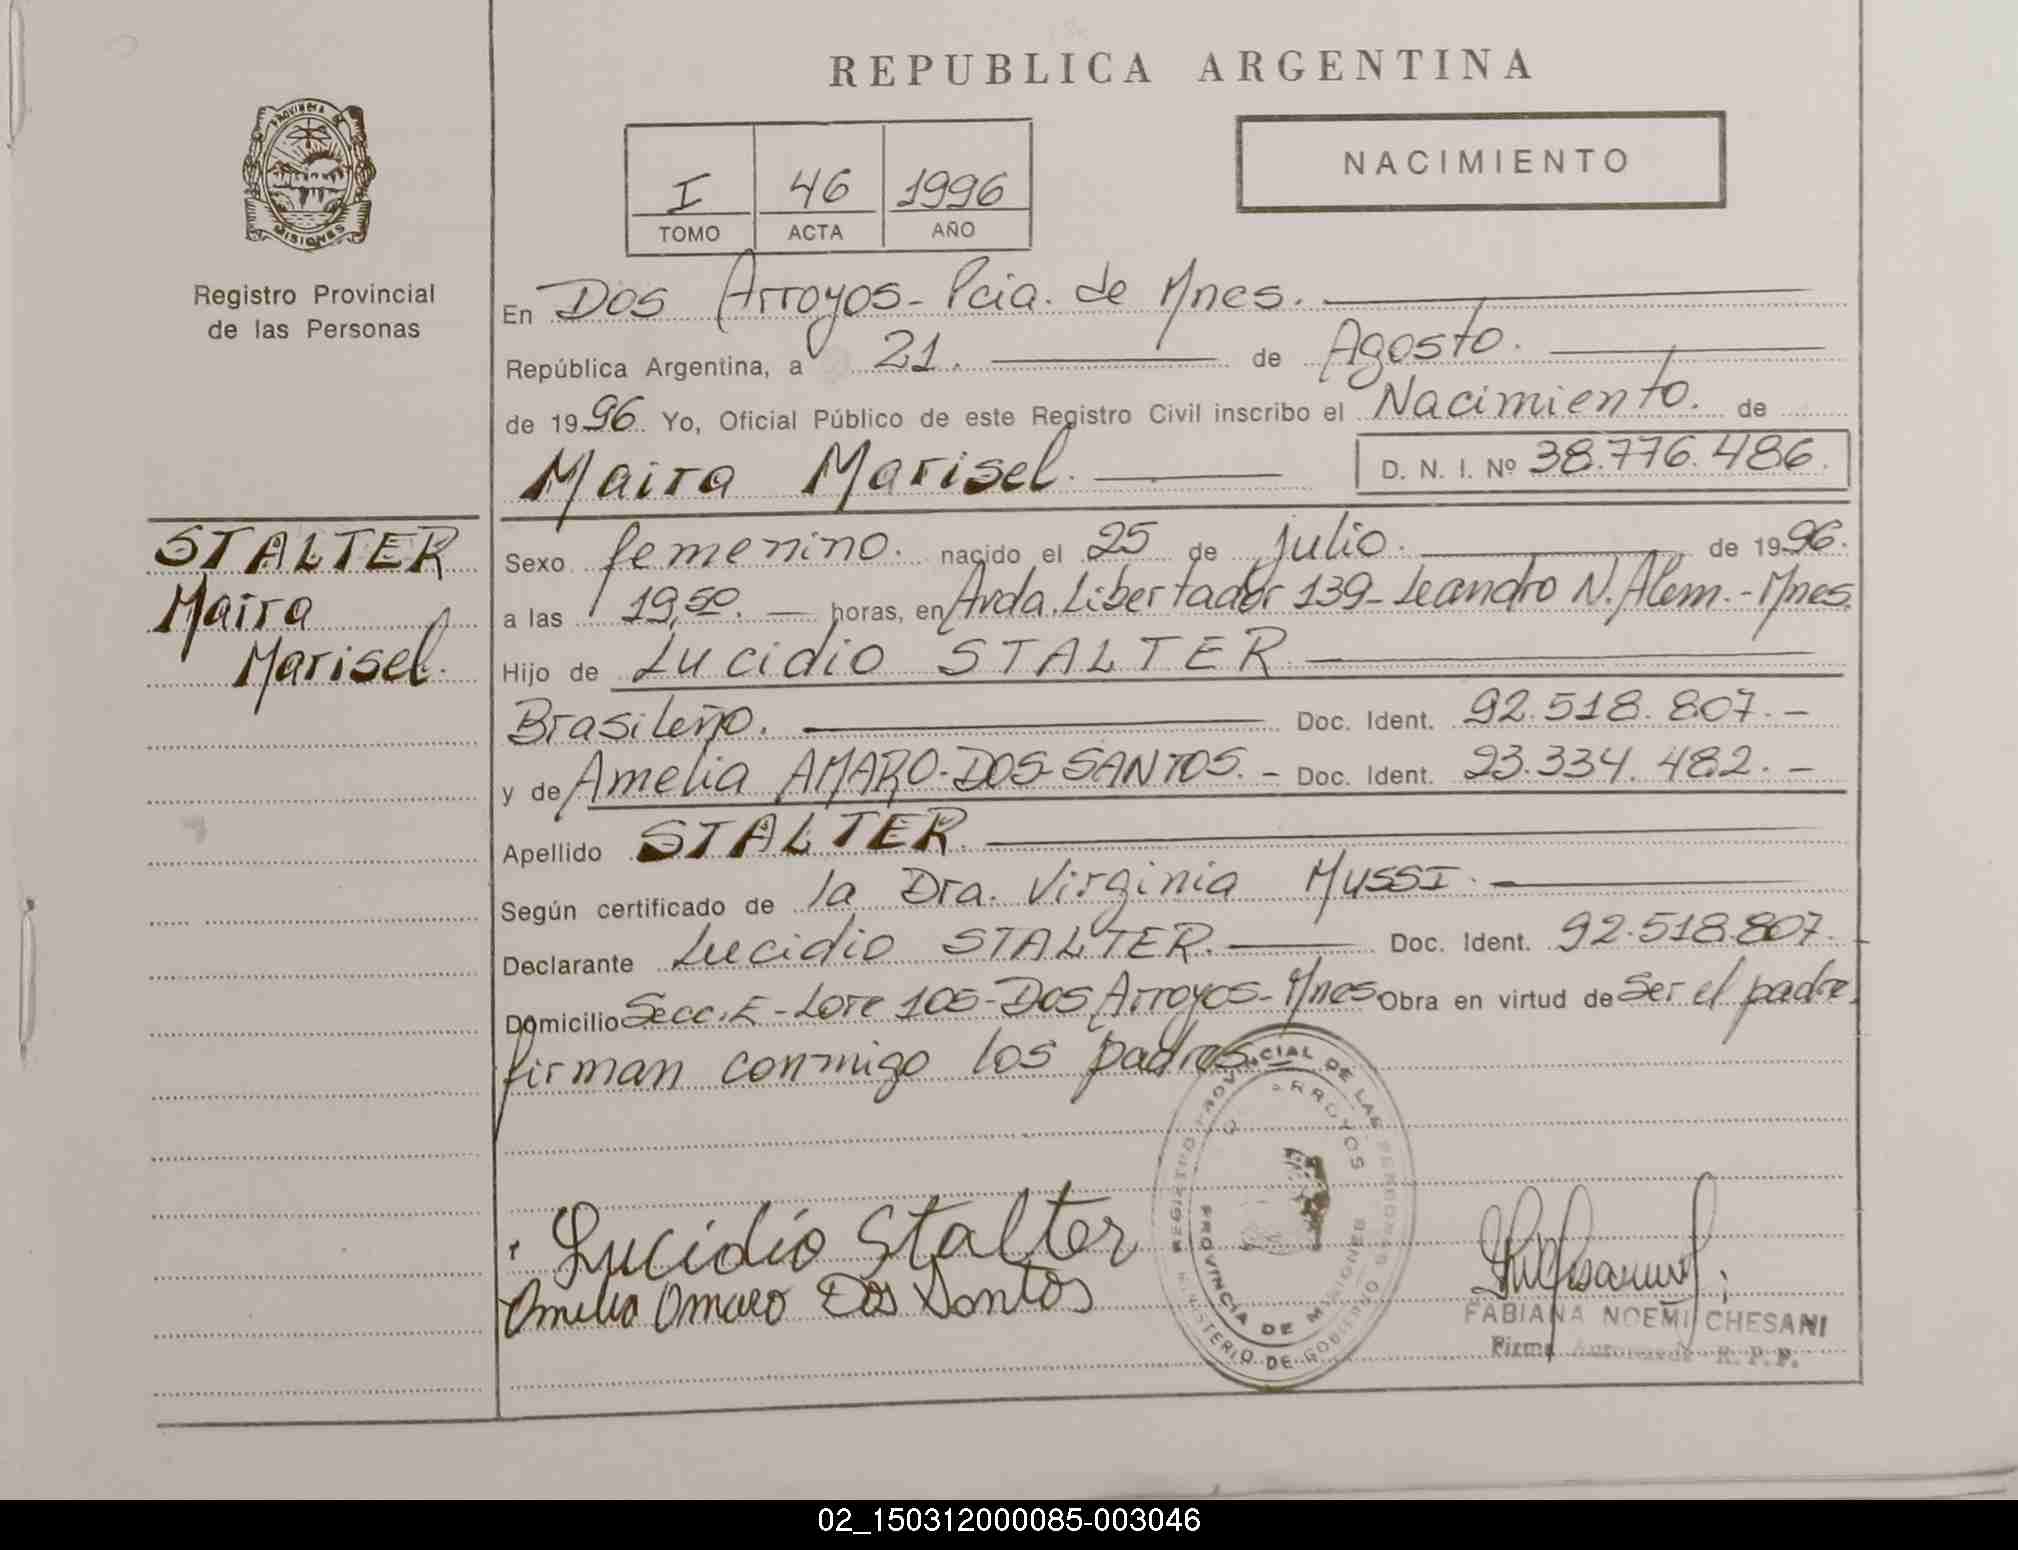 REPUBLICA ARGENTINA
PROVINCIA DE
MISIONES
Registro Provincial
de las Personas
I 46 1996
TOMO ACTA AÑO
NACIMIENTO
En Dos Arroyos - Pcia. de Mnes.
República Argentina, a 21. de Agosto.
de 1996 Yo, Oficial Público de este Registro Civil inscribo el Nacimiento. de
Maira Marisel. D. N. I. Nº 38.776.486.
STALTER
Maira
Marisel.
Sexo femenino. nacido el 25 de julio. de 1996.
a las 19,50. horas, en Avda. Libertador 139 - Leandro N. Alem. - Mnes.
Hijo de Lucidio STALTER
Brasileño. Doc. Ident. 92.518.807. -
y de Amelia AMARO-DOS-SANTOS. - Doc. Ident. 93.334.482. -
Apellido STALTER.
Según certificado de la Dra. Virginia MUSSI.
Declarante Lucidio STALTER. Doc. Ident. 92.518.807.
Domicilio Secc. E - Lote 105 - Dos Arroyos - Mnes Obra en virtud de Ser el padre.
firman conmigo los padres
REGISTRO PROVINCIAL DE LAS PERSONAS
MINISTERIO DE GOBIERNO
ARROYOS
PROVINCIA DE MISIONES
Lucidio Stalter
Amelia Amaro Dos Santos
FABIANA NOEMI CHESANI
Firma Autorizada R. P. P.
02_150312000085-003046